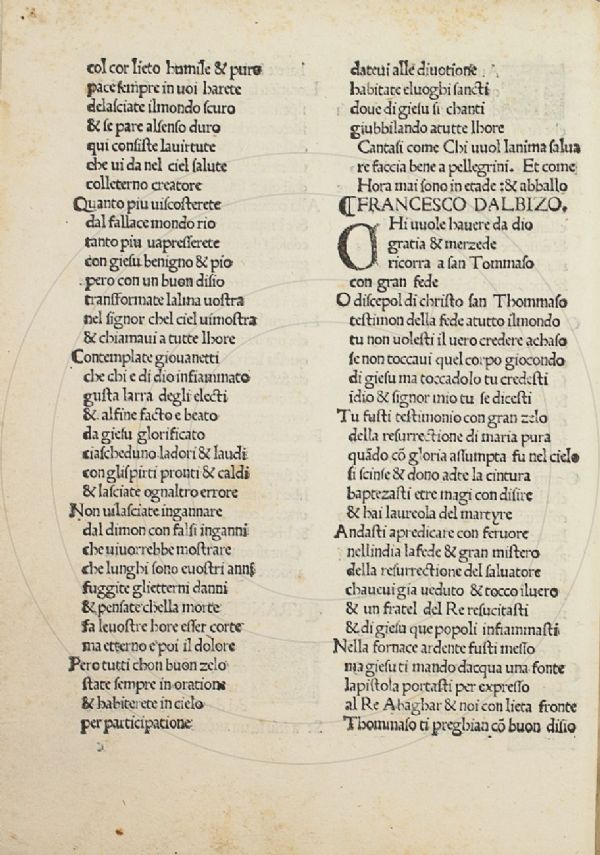 col cor lieto humile & puro
pace sempre in uoi harete
delasciate ilmondo scuro
& se pare alsenso duro
qui consiste lauirtute
che ui da nel ciel salute
colleterno creatore
Quanto piu uiscosterete
dal fallace mondo rio
tanto piu uapresserete
con giesu benigno & pio
pero con un buon disio
transformate lalma uostra
nel signor chel ciel uimostra
& chiamaui a tutte lhore
Contemplate giouanetti
che chi e di dio infiammato
gusta larra degli electi
& alfine facto e beato
da giesu glorificato
ciascheduno ladori & laudi
con glispirti pronti & caldi
& lasciate ognaltro errore
Non uilasciate ingannare
dal dimon con falsi inganni
che uiuorrebbe mostrare
che lunghi sono euostri anni
fuggite glietterni danni
& pensate chella morte
fa leuostre hore esser corte
ma etterno e poi il dolore
Pero tutti chon buon zelo
state sempre in oratione
& habiterete in cielo
per participatione
dateui alle diuotione
habitate eluoghi sancti
doue di giesu si chanti
giubbilando atutte lhore
Cantasi come Chi uuol lanima salua
re faccia bene a pellegrini. Et come
Hora mai sono in etade :& abballo
¶FRANCESCO DALBIZO.
CHi uuole hauere da dio
gratia & merzede
ricorra a san Tommaso
con gran fede
O discepol di christo san Thommaso
testimon della fede atutto ilmondo
tu non uolesti il uero credere achaso
se non toccaui quel corpo giocondo
di giesu ma toccadolo tu credesti
idio & signor mio tu se dicesti
Tu fusti testimonio con gran zelo
della resurrectione di maria pura
quādo cō gloria assumpta fu nel cielo
si scinse & dono adte la cintura
baptezasti etre magi con disire
& hai laureola del martyre
Andasti apredicare con feruore
nellindia lafede & gran mistero
della resurrectione del saluatore
chaueui gia ueduto & tocco iluero
& un fratel del Re resucitasti
& di giesu que popoli infiammasti
Nella fornace ardente fusti messo
ma giesu ti mando dacqua una fonte
lapistola portasti per expresso
al Re Abaghar & noi con lieta fronte
Thommaso ti preghian cō buon disio